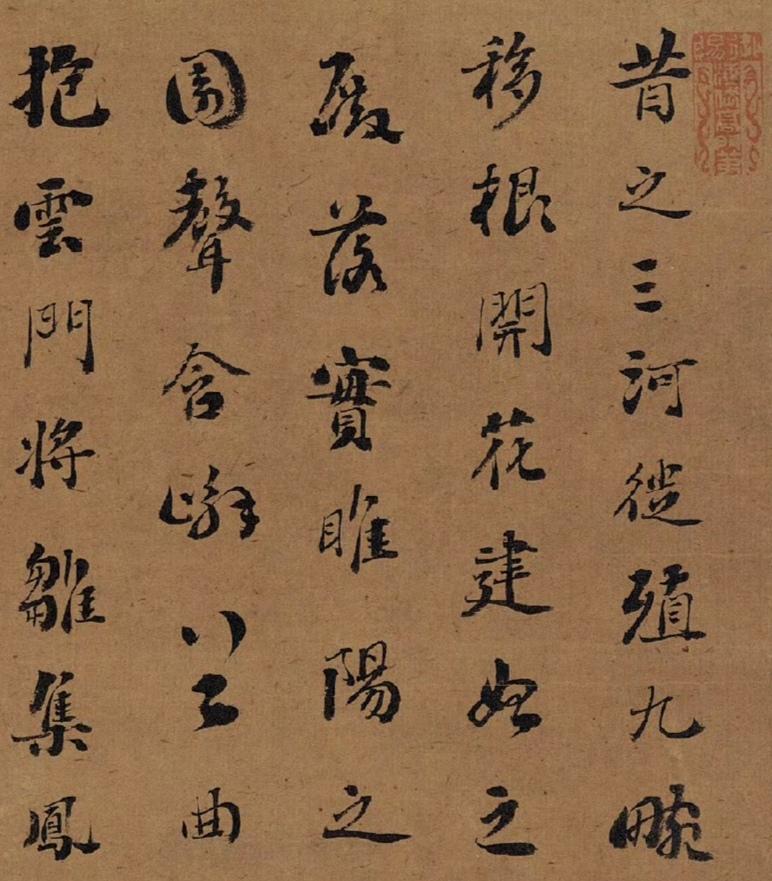 昔之三河徙殖九畹
移根開花建始之
殿落實睢陽之
園聲含嶰谷曲
抱雲門将雛集鳳